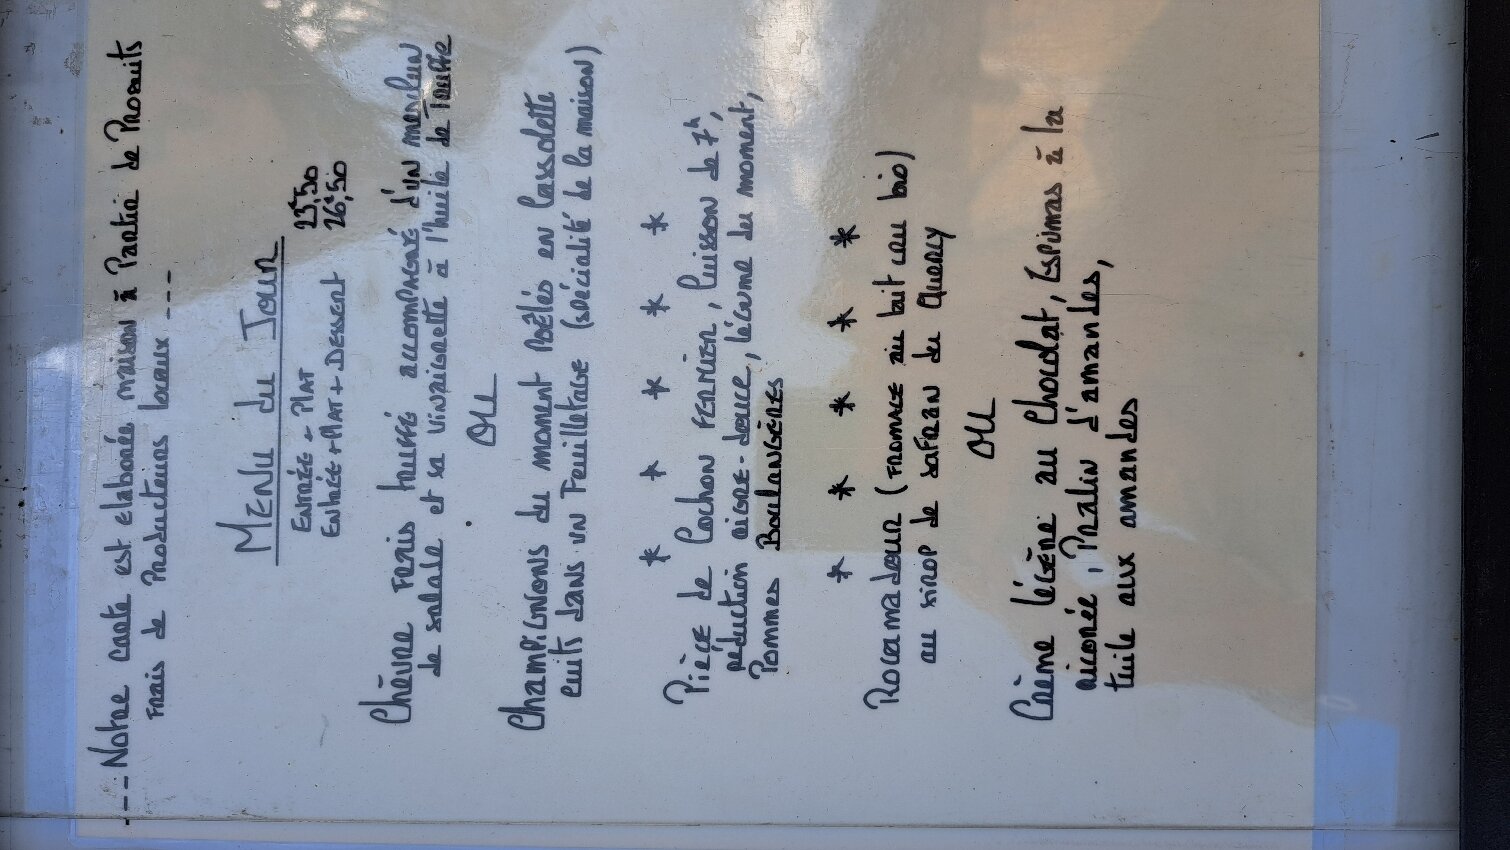 --- Notre carte est élaborée maison à Partir de Produits
Frais de Producteurs locaux ---
MENU du JOUR
ENTRÉE + PLAT 23€,50
ENTRÉE + PLAT + DESSERT 26€,50
Chèvre FRAIS truffé accompagné d'un mesclun
de salade et sa vinaigrette à l'huile de Truffe
OU
Champignons du moment Poêlés en Cassolette
cuits dans un Feuilletage (spécialité de la maison)
* * * * *
Pièce de Cochon FERMIER, Cuisson de 7h,
réduction aigre-douce, légume du moment,
Pommes Boulangères
* * * * *
Rocamadour (FROMAGE au lait cru bio)
au sirop de SAFRAN du Quercy
OU
Crème légère au Chocolat, Espumas à la
chicorée, Pralin d'amandes,
tuile aux amandes